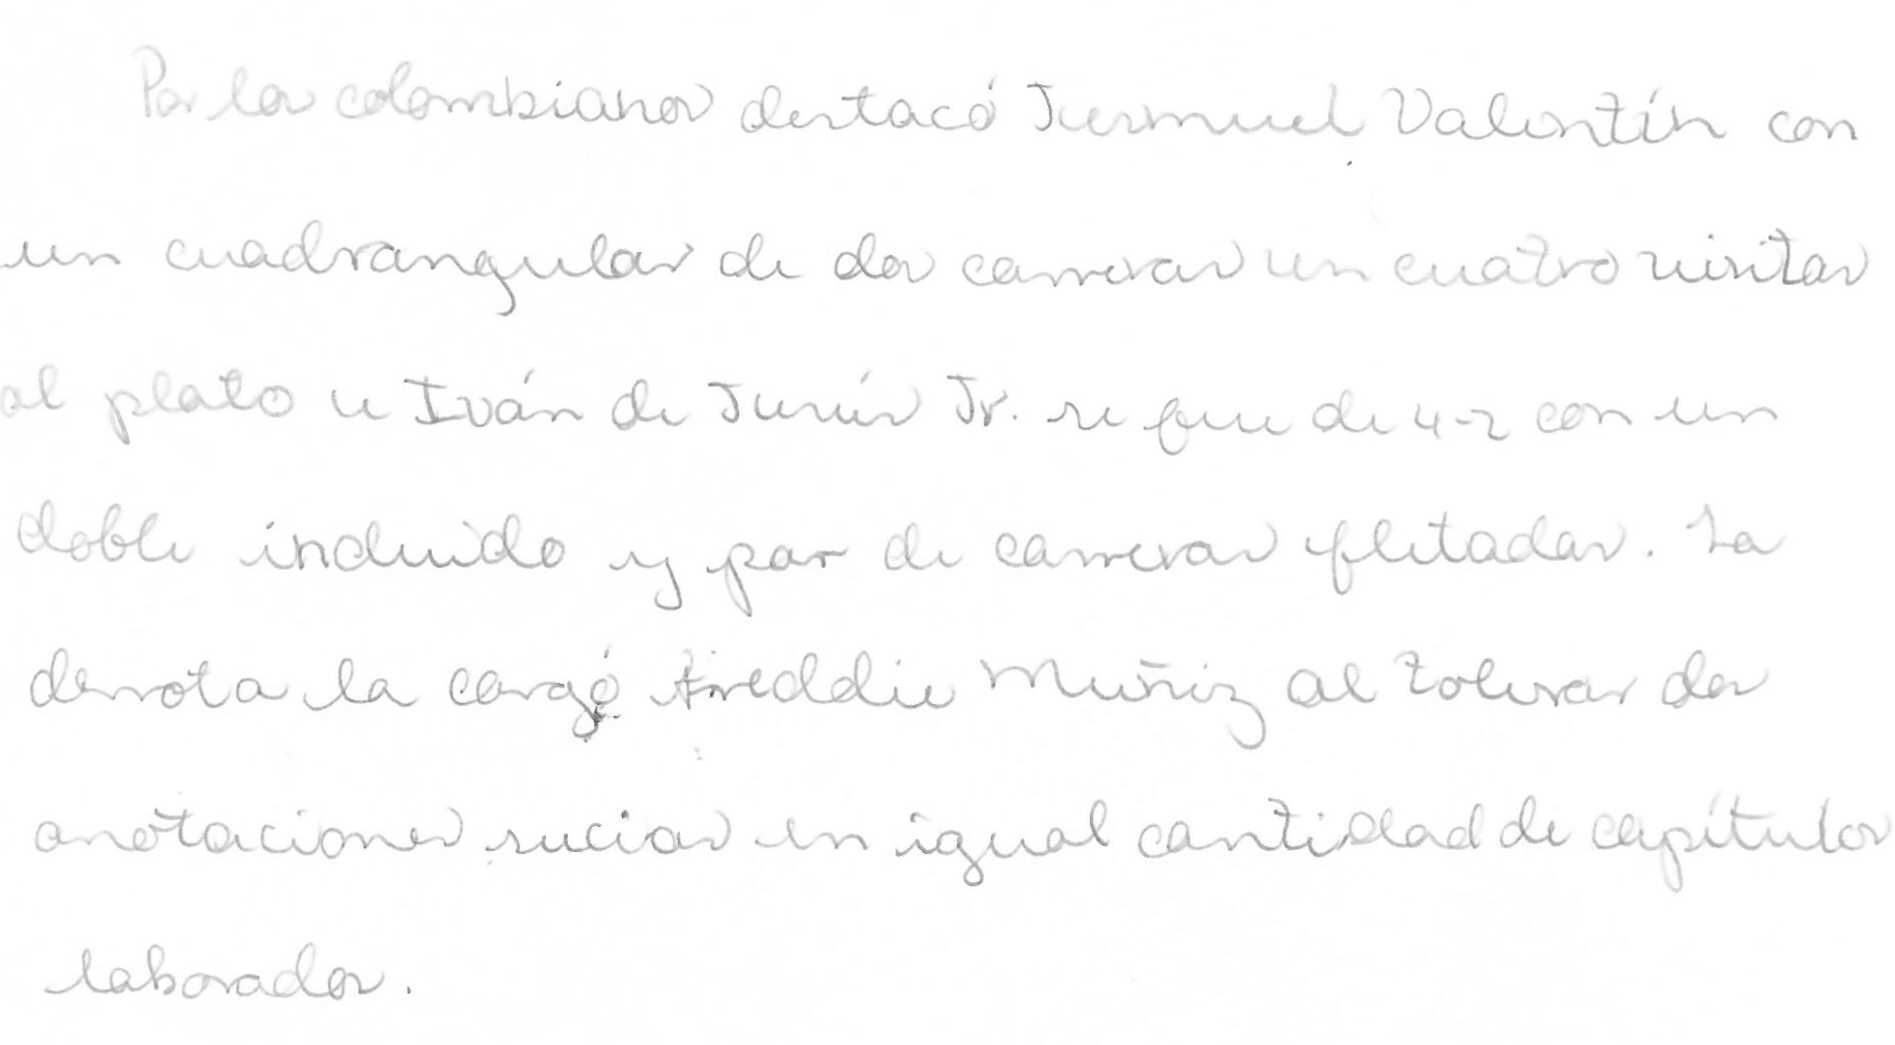 Por los colombianos destacó Jermuel Valentín con
un cuadrangular de dos carreras en cuatro visitas
al plato e Iván de Jesús Jr. se fue de 4-2 con un
doble incluido y par de carreras fletadas. La
derrota la cargó Freddie Muñiz al tolerar dos
anotaciones sucias en igual cantidad de capítulos
laborados.